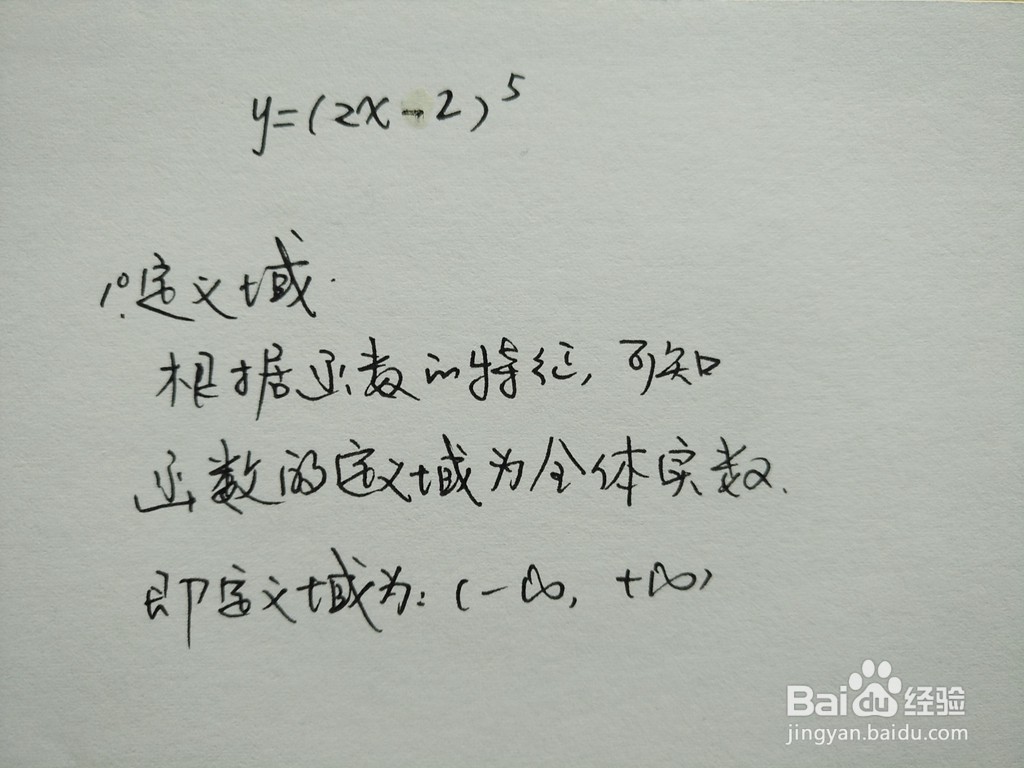 y=(2x-2)⁵
1°.定义域.
根据函数的特征,可知
函数的定义域为全体实数.
即定义域为:(-∞,+∞)
Bai du 经验
jingyan.baidu.com